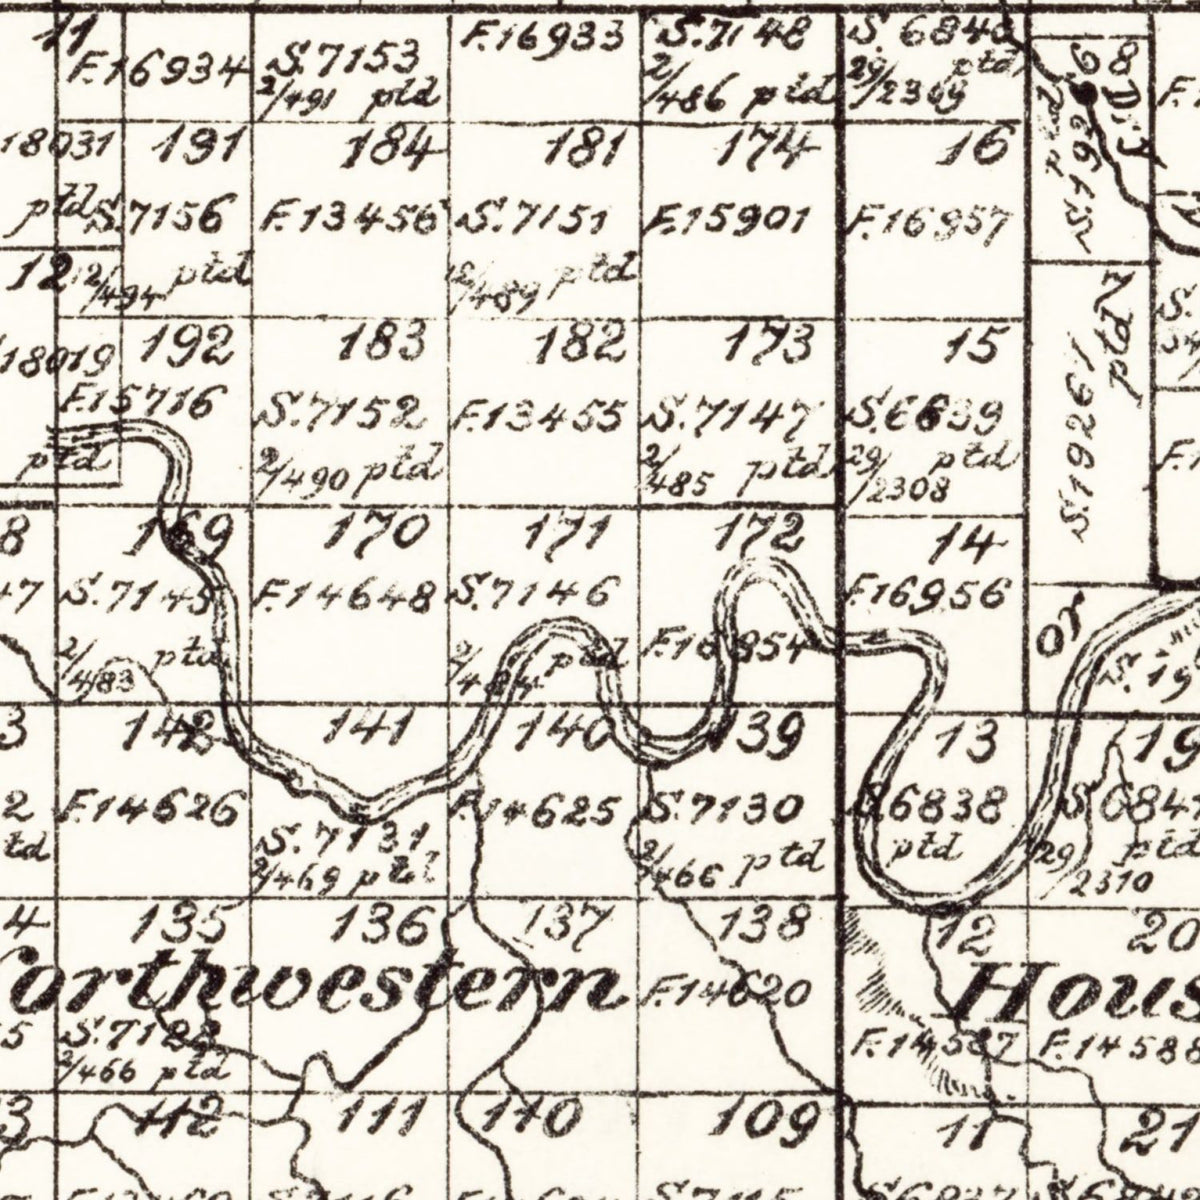 11
F.16934
S.7153
2/491 ptd
F.16933
S.7148
2/486 ptd
S.6840
ptd
29/2309
18031
ptd
191
S.7156
12/494 ptd
184
F.13456
181
S.7151
12/489 ptd
174
F.15901
16
F.16957
S.192
ptd
12
18019
ptd
192
F.15716
183
S.7152
2/490 ptd
182
F.13455
173
S.7147
2/485 ptd
15
S.6839
29/2308 ptd
S.19261
ptd
8
47
169
S.7145
2/483 ptd
170
F.14648
171
S.7146
2/484 ptd
172
F.16854
14
F.16956
or
S.19
3
2
td
142
F.14626
141
S.7131
2/469 ptd
140
F.14625
139
S.7130
2/466 ptd
13
S.6838
ptd
19
S.684
29/2310 ptd
4
135
136
137
138
12
20
orthwestern
Hous
F.14620
5
S.7128
2/466 ptd
F.14587
F.14588
3
112
111
110
109
11
21